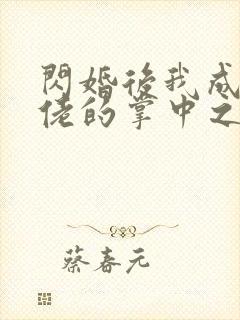 閃婚後我成
佬的掌中之
蔡春元